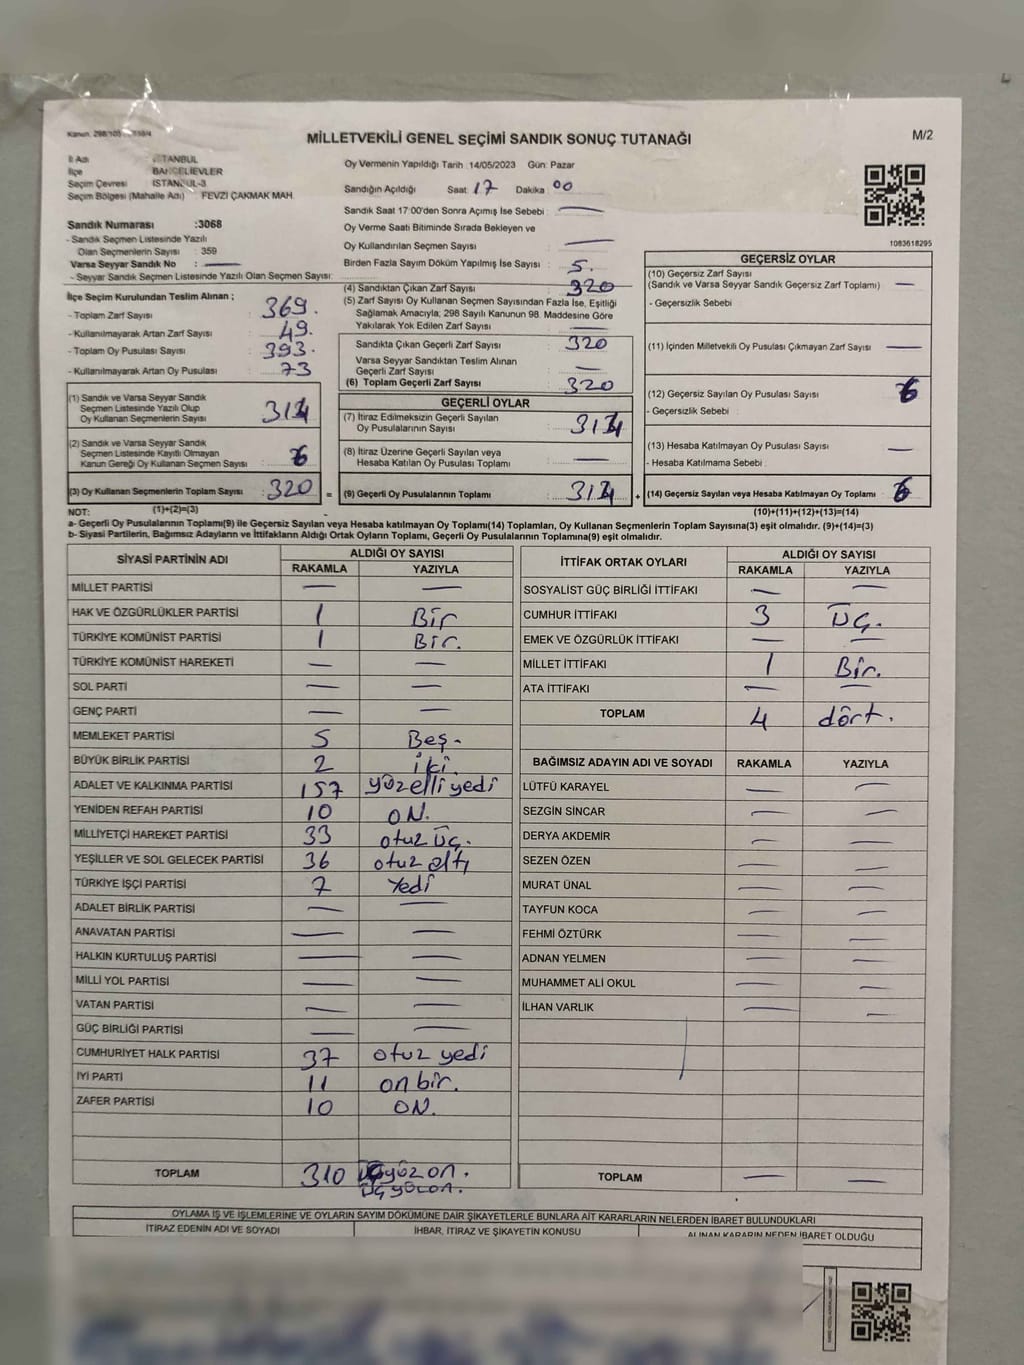 MİLLETVEKİLİ GENEL SEÇİMİ SANDIK SONUÇ TUTANAĞI
M/2
İl Adı İSTANBUL
İlçe BAHÇELİEVLER
Seçim Çevresi İSTANBUL-3
Seçim Bölgesi (Mahalle Adı) FEVZİ ÇAKMAK MAH.
Sandık Numarası :3068
- Sandık Seçmen Listesinde Yazılı
Olan Seçmenlerin Sayısı : 359
Varsa Seyyar Sandık No : —
- Seyyar Sandık Seçmen Listesinde Yazılı Olan Seçmen Sayısı:
İlçe Seçim Kurulundan Teslim Alınan ;
- Toplam Zarf Sayısı : 369.
- Kullanılmayarak Artan Zarf Sayısı : 49.
- Toplam Oy Pusulası Sayısı : 393.
- Kullanılmayarak Artan Oy Pusulası : 73
(1) Sandık ve Varsa Seyyar Sandık
Seçmen Listesinde Yazılı Olup
Oy Kullanan Seçmenlerin Sayısı : 314
(2) Sandık ve Varsa Seyyar Sandık
Seçmen Listesinde Kayıtlı Olmayan
Kanun Gereği Oy Kullanan Seçmen Sayısı : 6
(3) Oy Kullanan Seçmenlerin Toplam Sayısı : 320 =
Oy Vermenin Yapıldığı Tarih :14/05/2023 Gün: Pazar
Sandığın Açıldığı Saat: 17 Dakika: 00
Sandık Saat 17:00'den Sonra Açımış İse Sebebi : —
Oy Verme Saati Bitiminde Sırada Bekleyen ve
Oy Kullandırılan Seçmen Sayısı : —
Birden Fazla Sayım Döküm Yapılmış İse Sayısı : 5.
(4) Sandıktan Çıkan Zarf Sayısı : 320
(5) Zarf Sayısı Oy Kullanan Seçmen Sayısından Fazla İse, Eşitliği
Sağlamak Amacıyla; 298 Sayılı Kanunun 98. Maddesine Göre
Yakılarak Yok Edilen Zarf Sayısı : —
Sandıkta Çıkan Geçerli Zarf Sayısı : 320
Varsa Seyyar Sandıktan Teslim Alınan
Geçerli Zarf Sayısı : —
(6) Toplam Geçerli Zarf Sayısı : 320
GEÇERLİ OYLAR
(7) İtiraz Edilmeksizin Geçerli Sayılan
Oy Pusulalarının Sayısı : 314
(8) İtiraz Üzerine Geçerli Sayılan veya
Hesaba Katılan Oy Pusulası Toplamı : —
(9) Geçerli Oy Pusulalarının Toplamı : 314 +
1083618295
GEÇERSİZ OYLAR
(10) Geçersiz Zarf Sayısı
(Sandık ve Varsa Seyyar Sandık Geçersiz Zarf Toplamı) : —
- Geçersizlik Sebebi :
(11) İçinden Milletvekili Oy Pusulası Çıkmayan Zarf Sayısı : —
(12) Geçersiz Sayılan Oy Pusulası Sayısı : 6
- Geçersizlik Sebebi :
(13) Hesaba Katılmayan Oy Pusulası Sayısı : —
- Hesaba Katılmama Sebebi :
(14) Geçersiz Sayılan veya Hesaba Katılmayan Oy Toplamı : 6
NOT: (1)+(2)=(3) (10)+(11)+(12)+(13)=(14)
a- Geçerli Oy Pusulalarının Toplamı(9) ile Geçersiz Sayılan veya Hesaba katılmayan Oy Toplamı(14) Toplamları, Oy Kullanan Seçmenlerin Toplam Sayısına(3) eşit olmalıdır. (9)+(14)=(3)
b- Siyasi Partilerin, Bağımsız Adayların ve İttifakların Aldığı Ortak Oyların Toplamı, Geçerli Oy Pusulalarının Toplamına(9) eşit olmalıdır.
SİYASİ PARTİNİN ADI ALDIĞI OY SAYISI
RAKAMLA YAZIYLA
MİLLET PARTİSİ — —
HAK VE ÖZGÜRLÜKLER PARTİSİ 1 Bir
TÜRKİYE KOMÜNİST PARTİSİ 1 Bir.
TÜRKİYE KOMÜNİST HAREKETİ — —
SOL PARTİ — —
GENÇ PARTİ — —
MEMLEKET PARTİSİ 5 Beş.
BÜYÜK BİRLİK PARTİSİ 2 iki.
ADALET VE KALKINMA PARTİSİ 157 yüzelli yedi
YENİDEN REFAH PARTİSİ 10 ON.
MİLLİYETÇİ HAREKET PARTİSİ 33 otuz üç.
YEŞİLLER VE SOL GELECEK PARTİSİ 36 otuz altı
TÜRKİYE İŞÇİ PARTİSİ 7 Yedi
ADALET BİRLİK PARTİSİ — —
ANAVATAN PARTİSİ — —
HALKIN KURTULUŞ PARTİSİ — —
MİLLİ YOL PARTİSİ — —
VATAN PARTİSİ — —
GÜÇ BİRLİĞİ PARTİSİ — —
CUMHURİYET HALK PARTİSİ 37 otuz yedi
İYİ PARTİ 11 on bir.
ZAFER PARTİSİ 10 ON.
TOPLAM 310 üçyüz on.
üç yüz on.
İTTİFAK ORTAK OYLARI ALDIĞI OY SAYISI
RAKAMLA YAZIYLA
SOSYALİST GÜÇ BİRLİĞİ İTTİFAKI — —
CUMHUR İTTİFAKI 3 üç.
EMEK VE ÖZGÜRLÜK İTTİFAKI — —
MİLLET İTTİFAKI 1 Bir.
ATA İTTİFAKI — —
TOPLAM 4 dört.
BAĞIMSIZ ADAYIN ADI VE SOYADI RAKAMLA YAZIYLA
LÜTFÜ KARAYEL — —
SEZGİN SİNCAR — —
DERYA AKDEMİR — —
SEZEN ÖZEN — —
MURAT ÜNAL — —
TAYFUN KOCA — —
FEHMİ ÖZTÜRK — —
ADNAN YELMEN — —
MUHAMMET ALİ OKUL — —
İLHAN VARLIK — —
TOPLAM — —
OYLAMA İŞ VE İŞLEMLERİNE VE OYLARIN SAYIM DÖKÜMÜNE DAİR ŞİKAYETLERLE BUNLARA AİT KARARLARIN NELERDEN İBARET BULUNDUKLARI
İTİRAZ EDENİN ADI VE SOYADI İHBAR, İTİRAZ VE ŞİKAYETİN KONUSU ALINAN KARARIN NEDEN İBARET OLDUĞU